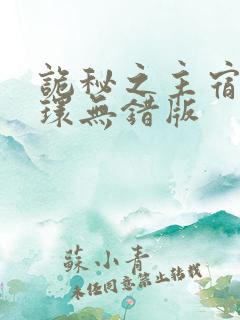 詭秘之主宿
環無錯版
蘇小青
未經同意禁止轉載